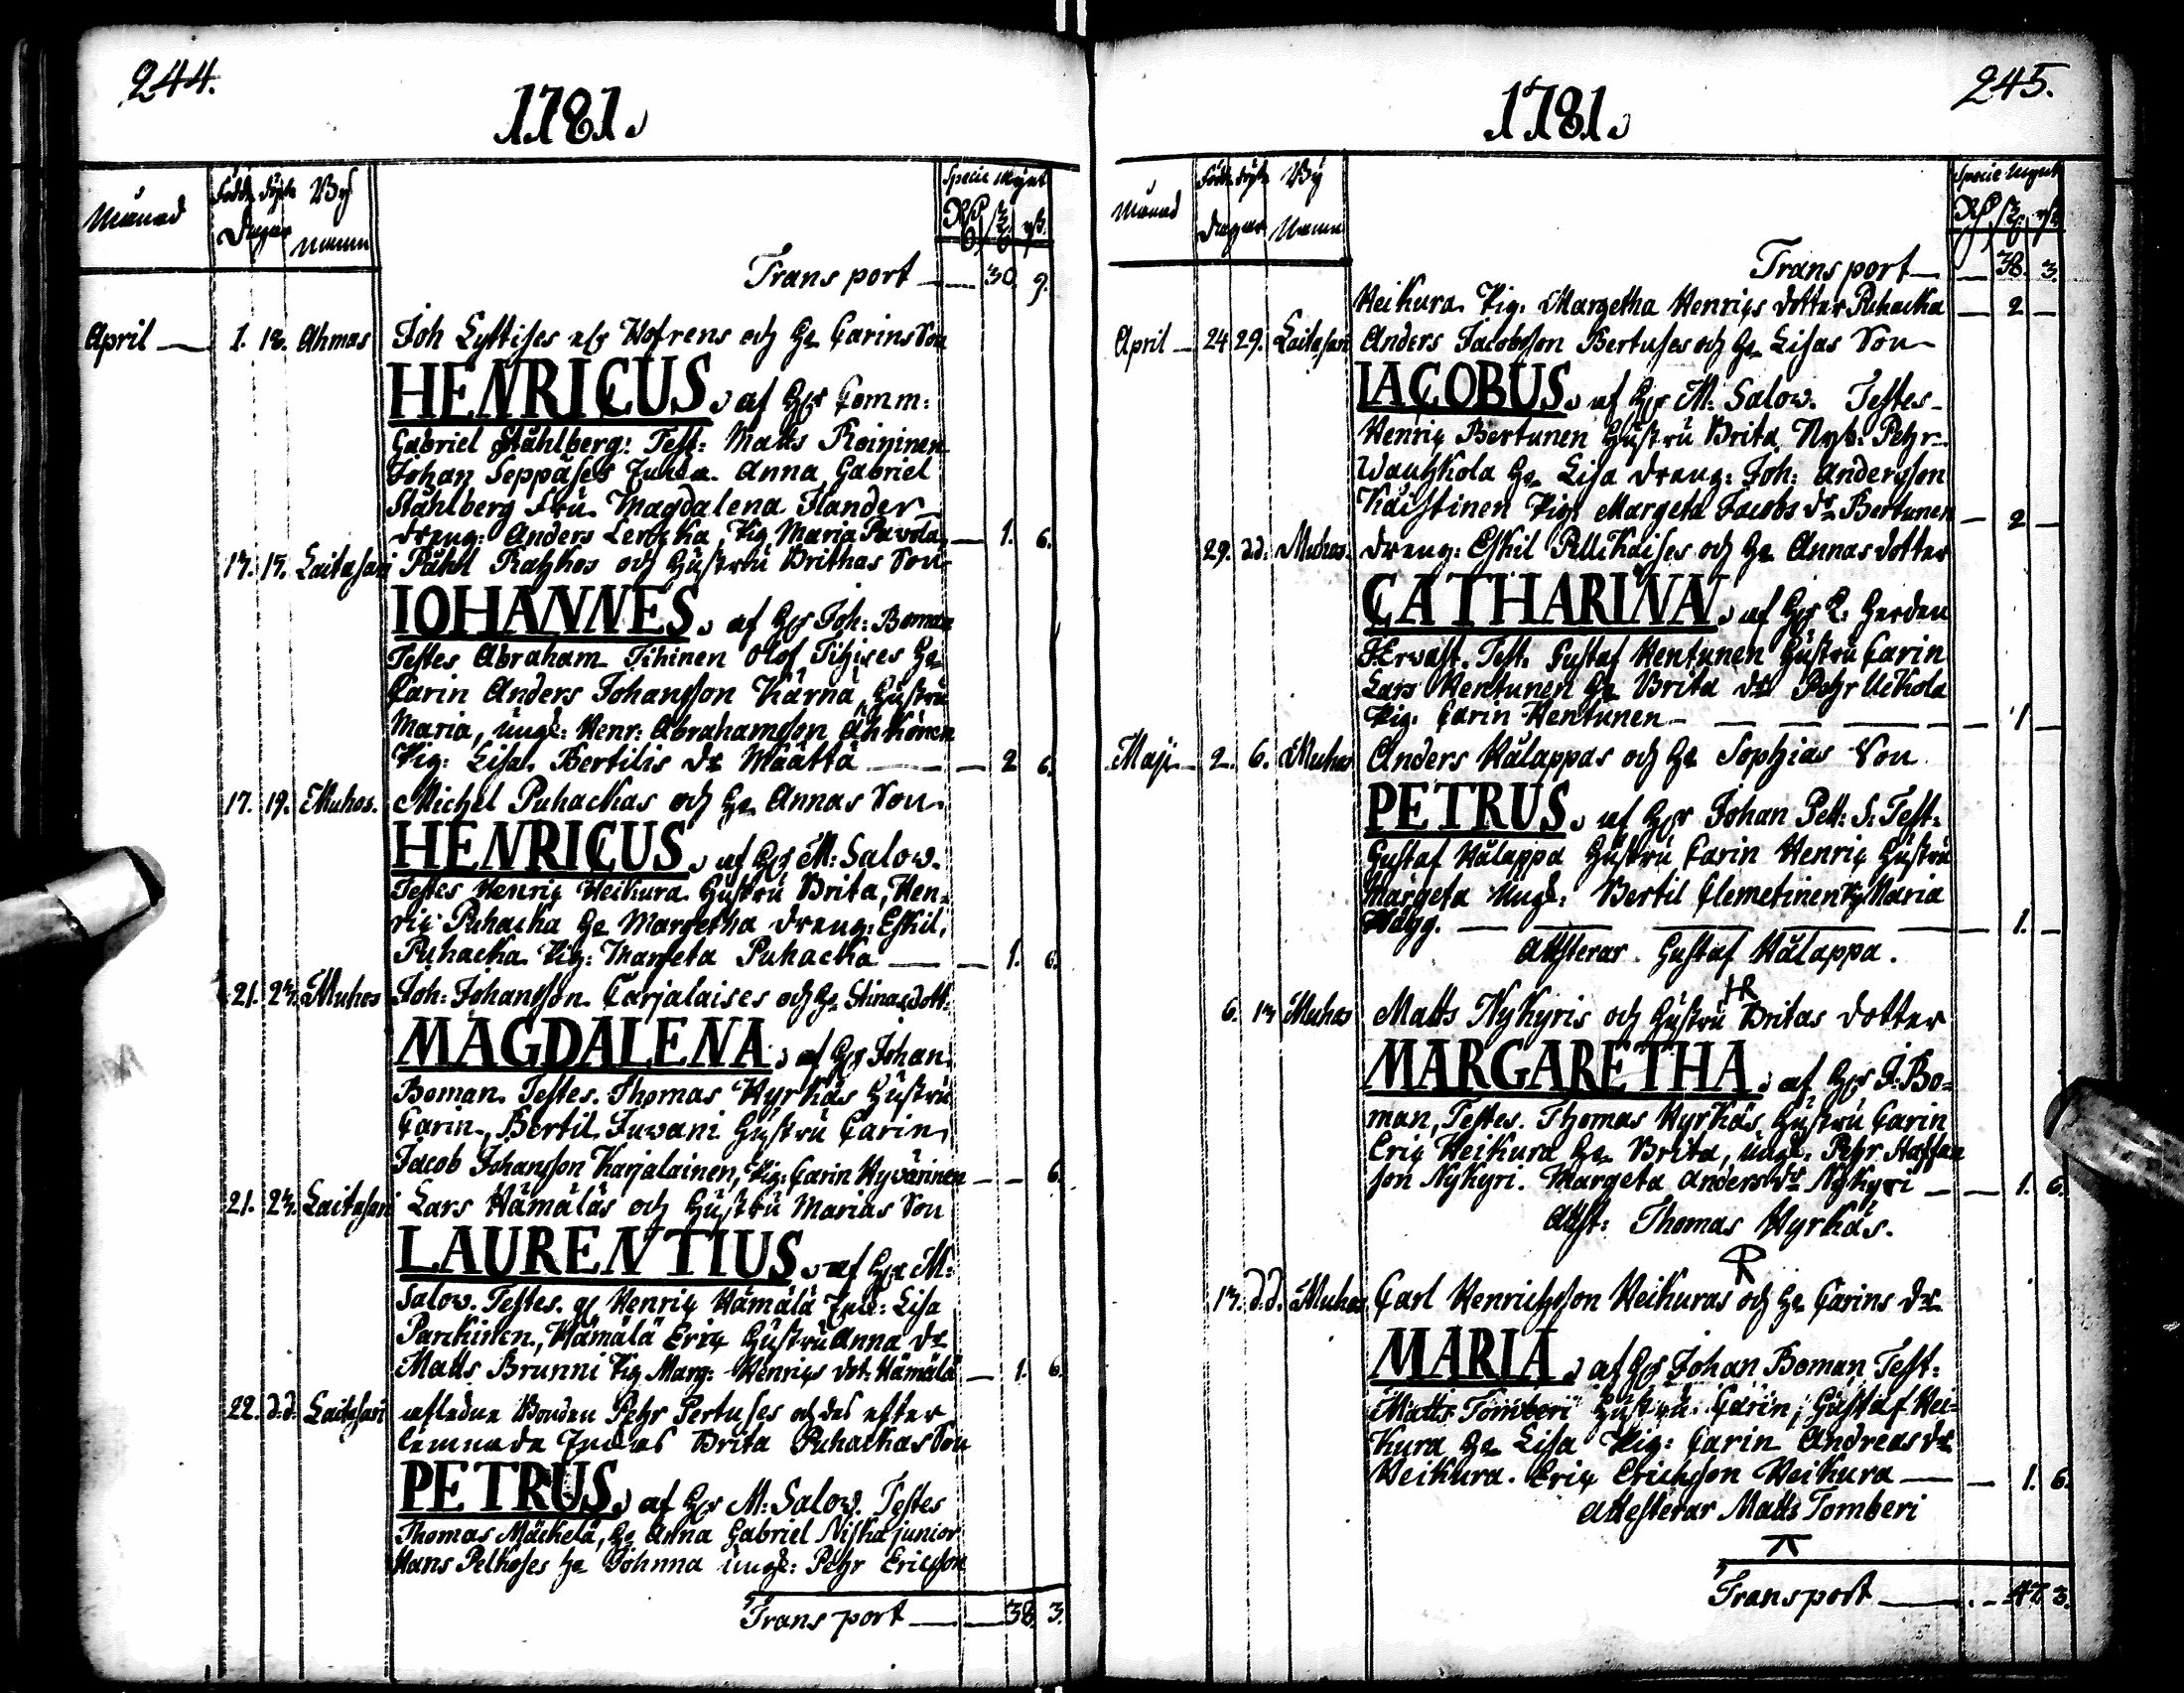 244.
1781.
Månad
Födde Döpte By
Dagar Namn
Specie Mynt
Transport — — 30. 9.
April — 1. 18. Ahmas Joh Lyttises och Hofrens och H. Carins Son
HENRICUS, af Hr Comm:
Gabriel Ståhlberg: Test: Matts Roininen
Johan Seppäses Enka Anna, Gabriel
Ståhlberg Fru Magdalena Flander
dräng: Anders Lerocka, Pig Maria Pavola — 1. 6.
17. 17. Laitasari Påhl Ratzkos och Hustru Brithas Son
IOHANNES, af Hr Joh: Boman
Testes Abraham Tihinen Olof Tihises H.
Carin Anders Johansson Kärnä, Hustru
Maria, ungk: Henr: Abrahamsson Ahkonen
Pig: Lisa Bertilis dr Määttä — — 2 6.
17. 19. Muhos. Michel Puhackas och H. Annas Son
HENRICUS, af Hr M: Salow.
Testes Henric Heikura Hustru Brita, Hen-
ric Puhacka H. Margetha dräng: Eskil,
Puhacka Pig: Margeta Puhacka — — 1. 6.
21. 23. Muhos Joh: Johansson Carjalaises och H. Stinas Dott:
MAGDALENA, af Hr Johan
Boman. Testes. Thomas Hyrkäs Hustru
Carin, Bertil Juvani Hustru Carin,
Jacob Johansson Karjalainen, Pig: Carin Hyvärinen — — 6.
21. 23. Laitasari Lars Hämäläs och Hustru Marias Son
LAURENTIUS, af Hr M:
Salow. Testes. Henric Hämälä Enk: Lisa
Parckinen, Hämälä Eric Hustru Anna dr
Matts Brunni Pig Marg: Henrics dot: Hämälä — 1. 6.
22. d.d. Laitasari afledne Bonden Pehr Pertuses och des efter
lämnade Enkas Brita Puhackas Son
PETRUS, af Hr M: Salow. Testes
Thomas Mäckelä, H. Anna Gabriel Niska junior
Hans Pelkoses H. Johnna ungk: Pehr Ericsson
Transport — — 38. 3.
245.
1781.
Månad
Födde Döpte By
Dagar Namn
Specie Mynt
Transport — — 38. 3.
Heikura Pig: Margetha Henrics dotter Puhacka — 2 —
April — 24 29. Laitasari Anders Jacobsson Bertuses och H. Lisas Son
IACOBUS, af Hr M: Salow. Testes
Henric Bertunen Hustru Brita Nyb: Pehr
Wauhkola H. Lisa dräng: Joh: Andersson
Kaistinen Pig: Margeta Jacobs dr Bertunen — 2 —
29. d.d. Muhos. dräng: Eskil Pellikaises och H. Annas dotter
CATHARINA, af Hr L: Gerden
Hervast. Test. Gustaf Hentunen Hustru Carin
Lars Hentunen H. Brita dr Pehr Uckola
Pig: Carin Hentunen — — — — 1 —
Maji — 2. 6. Muhos Anders Wälappas och H. Sophias Son
PETRUS, af Hr Johan Pett: S: Test:
Gustaf Wälappa Hustru Carin Henric Hustru
Margeta Ungk: Bertil Clemetinen Pig Maria
Hägg. — — — — — 1. —
Attesterar Gustaf Wälappa.
6. 13 Muhos Matts Nykyris och Hustru Britas dotter
MARGARETHA, af Hr J: Bo-
man, Testes. Thomas Hyrkäs, Hustru Carin
Eric Heikura H. Brita, ungk: Pehr Staffan
son Nykyri. Margeta Anders dr Nykyri — — 1. 6.
Attst: Thomas Hyrkäs.
13. d.d. Muhos Carl Henrichsson Heikuras och H. Carins dr
MARIA, af Hr Johan Boman, Test:
Matts Tomberi Hustru Carin, Gustaf Hei-
kura H. Lisa Pig: Carin Andreas dr
Heikura. Eric Erichsson Heikura — — 1. 6.
Attesterar Matts Tomberi
Transport — — 47. 3.